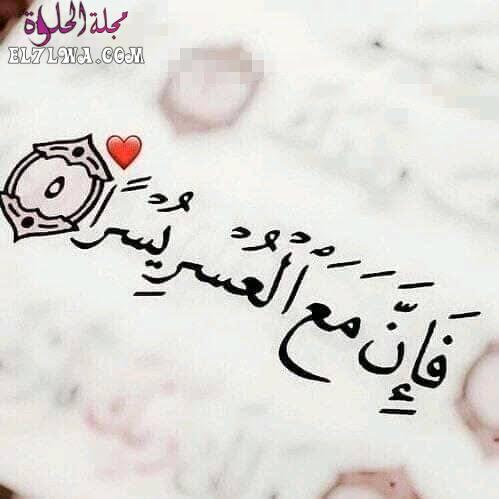 مجلة الحلوة
EL7L9WA.COM
فَإِنَّ مَعَ الْعُسْرِ يُسْرًا ٥